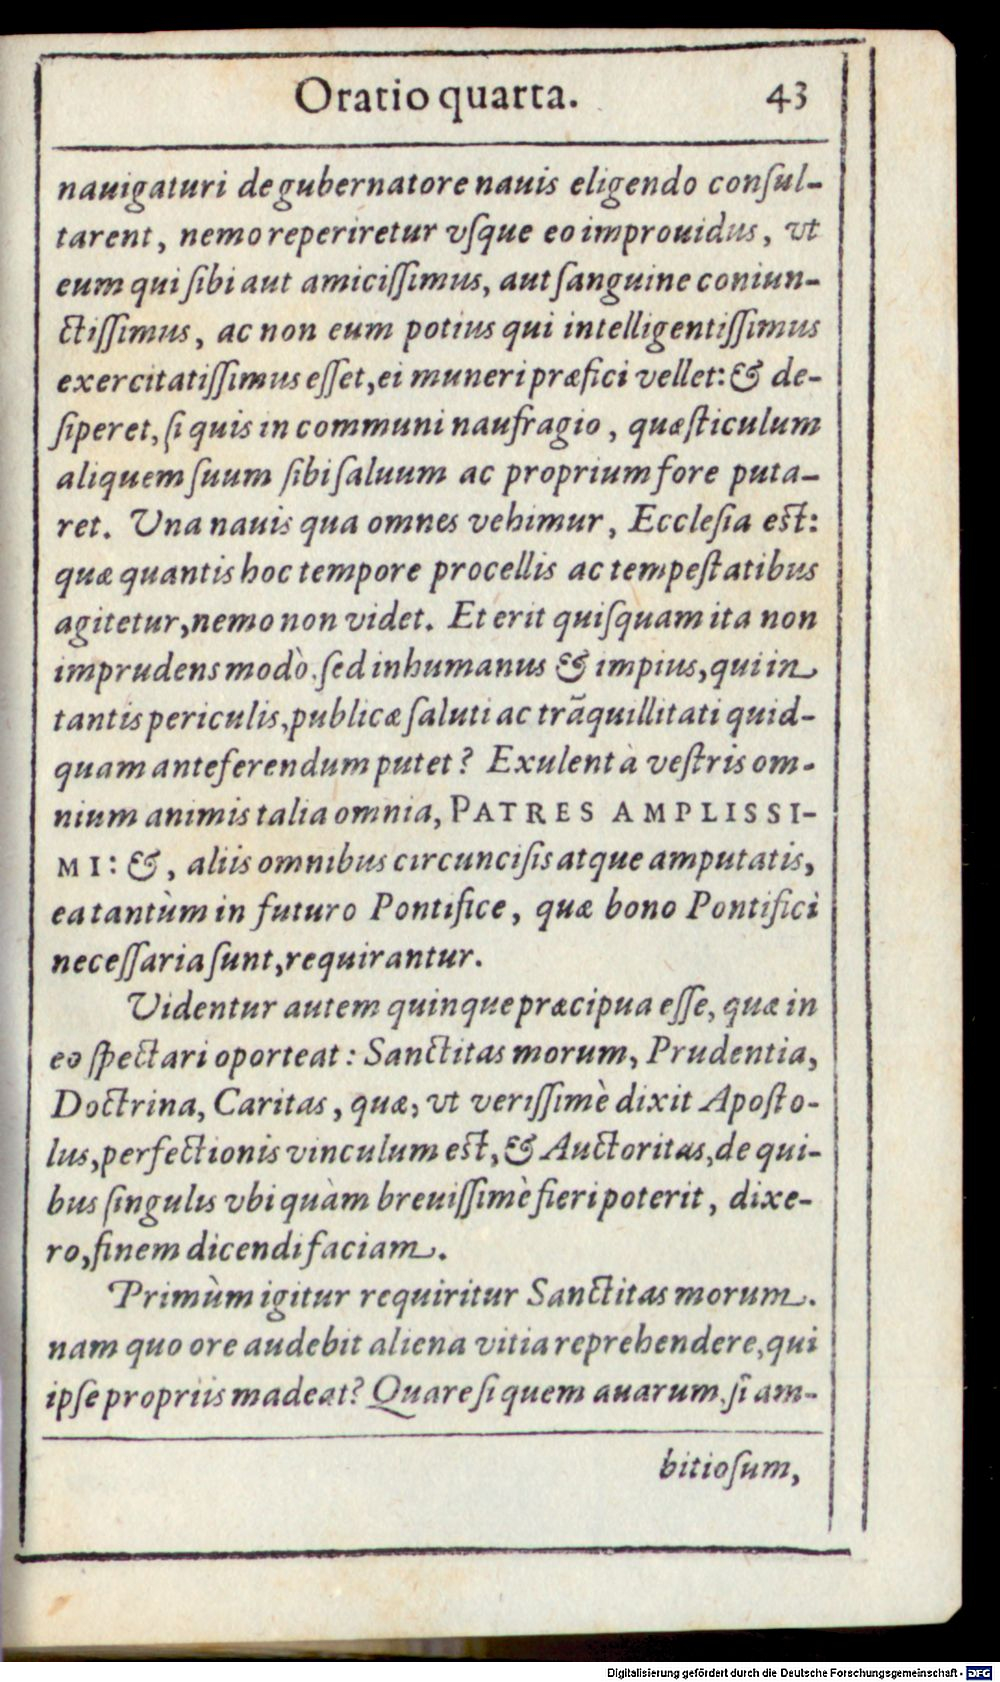 Oratio quarta. 43
nauigaturi de gubernatore nauis eligendo conſul-
tarent, nemo reperiretur vſque eo improuidus, vt
eum qui ſibi aut amiciſſimus, aut ſanguine coniun-
ctiſſimus, ac non eum potius qui intelligentiſſimus
exercitatiſſimus eſſet, ei muneri præfici vellet: & de-
ſiperet, ſi quis in communi naufragio, quæſticulum
aliquem ſuum ſibi ſaluum ac proprium fore puta-
ret. Una nauis qua omnes vehimur, Eccleſia eſt:
quæ quantis hoc tempore procellis ac tempeſtatibus
agitetur, nemo non videt. Et erit quiſquam ita non
imprudens modò, ſed inhumanus & impius, qui in
tantis periculis, publicæ ſaluti ac trãquillitati quid-
quam anteferendum putet? Exulent à veſtris om-
nium animis talia omnia, PATRES AMPLISSI-
MI: &, aliis omnibus circunciſis atque amputatis,
ea tantùm in futuro Pontifice, quæ bono Pontifici
neceſſaria ſunt, requirantur.
Videntur autem quinque præcipua eſſe, quæ in
eo ſpectari oporteat: Sanctitas morum, Prudentia,
Doctrina, Caritas, quæ, vt veriſſimè dixit Apoſto-
lus, perfectionis vinculum eſt, & Auctoritas, de qui-
bus ſingulis vbi quàm breuiſſimè fieri poterit, dixe-
ro, finem dicendi faciam.
Primùm igitur requiritur Sanctitas morum.
nam quo ore audebit aliena vitia reprehendere, qui
ipſe propriis madeat? Quare ſi quem auarum, ſi am-
bitioſum,
Digitalisierung gefördert durch die Deutsche Forschungsgemeinschaft - DFG